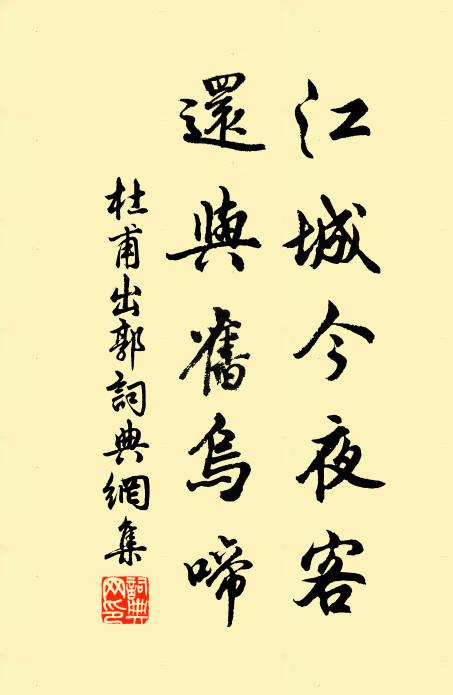 江城今夜客
還與舊烏啼
杜甫出郭詞典網集
詞典網印